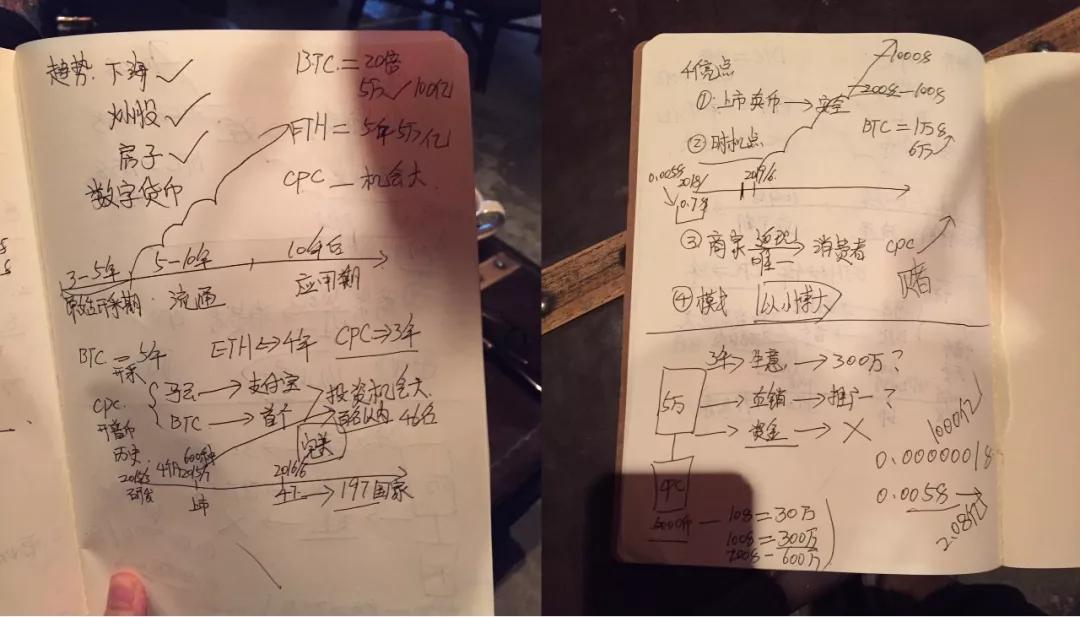 趋势: 下海 ✓
炒股 ✓
房子 ✓
数字货币
BTC = 20倍
5万 / 100亿
ETH = 5年5万亿
CPC — 机会大
3-5年 5-10年 10年后
原始开采期 流通 应用期
BTC = 5年 ETH ⇔ 4年 CPC ⇒ 3年
开采
CPC 马云 → 支付宝 投资机会大
开普币 BTC → 首个 百名以内 46名
历史
600种 完美
研发 上市 2016/6
→ 197国家
4亮点
① 上市卖币 → 安全
1000$
200$-100$
② 时机点
BTC = 1万$
6万
0.005$ 2018/ 2019/6
0.7$
③ 商家 返现 → 消费者
唯一
CPC
赌
④ 模式 以小博大
3年 生意 → 300万?
5万 → 直销 → 推广?
→ 资金 → ×
1000亿
0.0000001$
CPC
0.005$ →
2.08亿
10$ = 30万
100$ = 300万
200$ - 600万